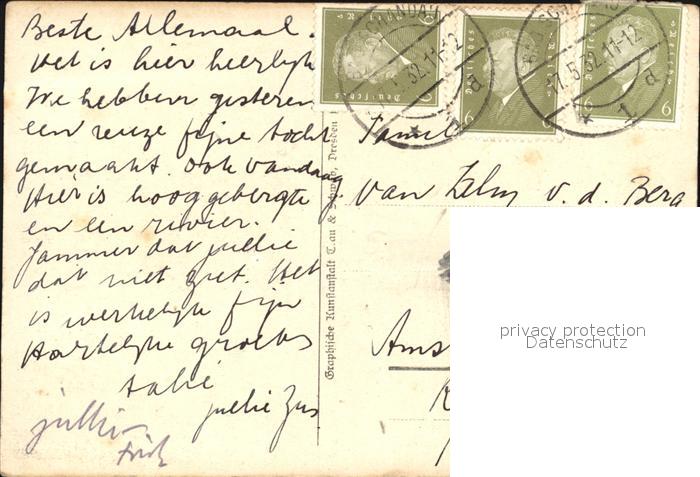 Beste Allemaal.
Het is hier heerlijk
We hebben gisteren
een reuze fijne tocht
gemaakt. ook vandaag.
Hier is hooggebergte
en een rivier.
Jammer dat jullie
dat niet ziet. Het
is werkelijk fijn
Hartelijke groeten
jullie Zus
Famil
van Zelm v. d. Berg
Ams
Graphische Kunstanstalt & Schwab, Dresden
BAD SCHANDAU
.5.32.11-12
d
BAD SCHANDAU
17.5.32.11-12
* d
Deutsches Reich
6
6
6 6
privacy protection
Datenschutz